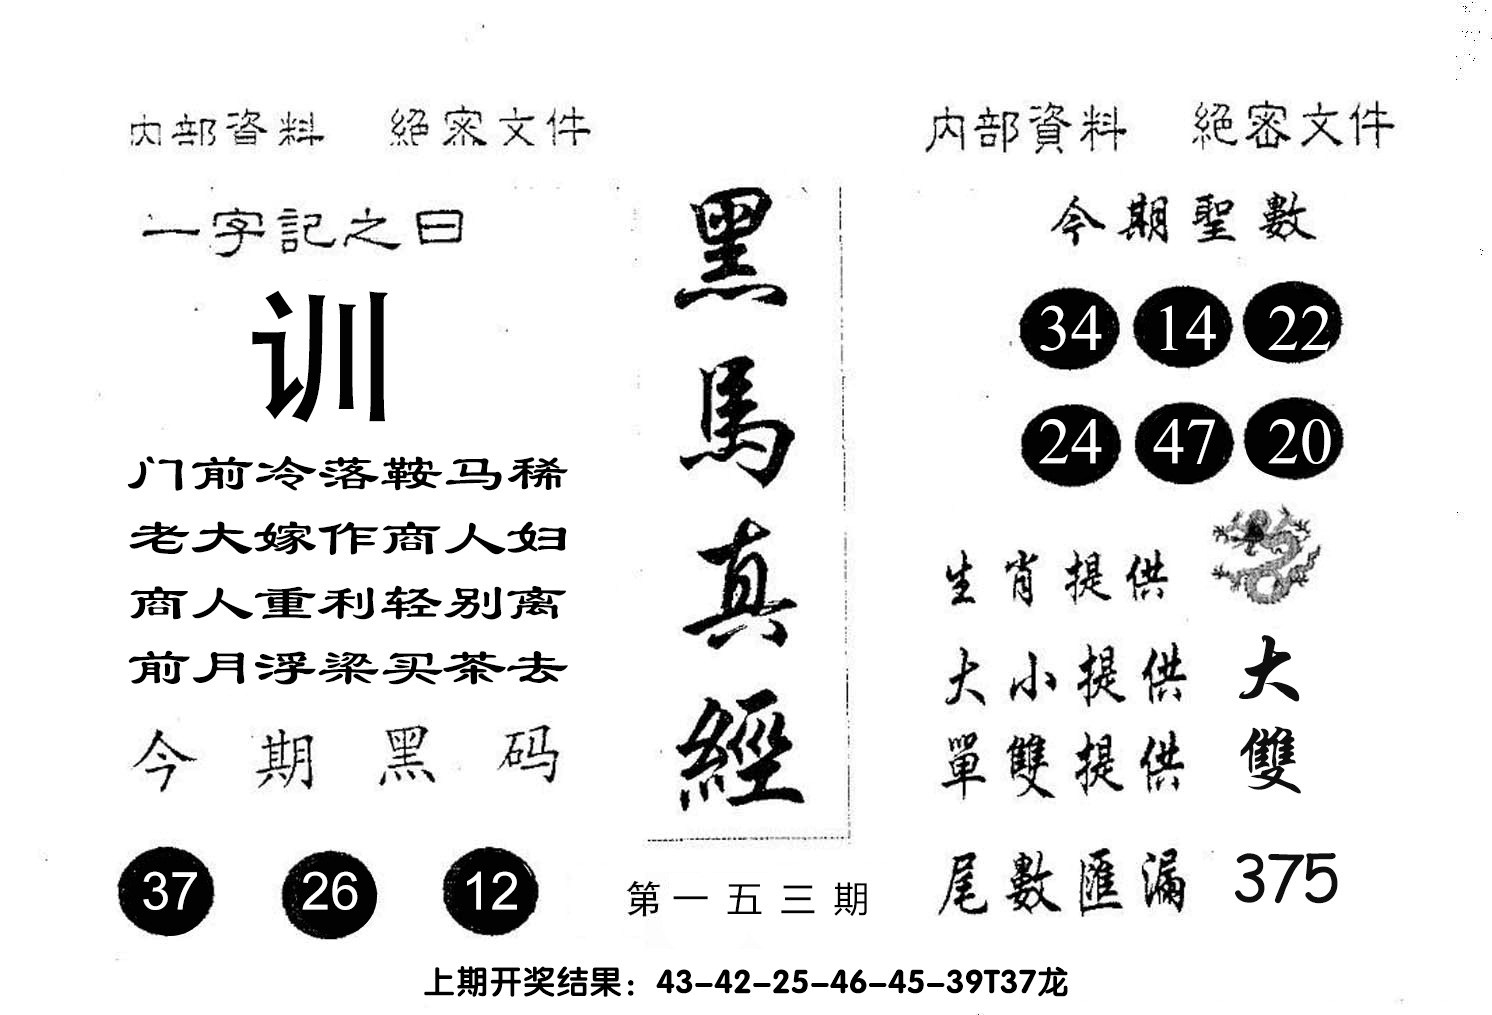 内部資料 絕密文件
一字記之曰
训
门前冷落鞍马稀
老大嫁作商人妇
商人重利轻别离
前月浮梁买茶去
今期黑码
37 26 12
黑馬真經
第一五三期
内部資料 絕密文件
今期聖數
34 14 22
24 47 20
生肖提供
大小提供 大
單雙提供 雙
尾數匯漏 375
上期开奖结果：43-42-25-46-45-39T37龙